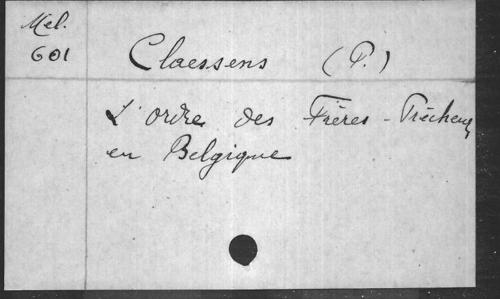 Mel.
601
Claessens (P.)
L'ordre des Frères-Prêcheurs
en Belgique